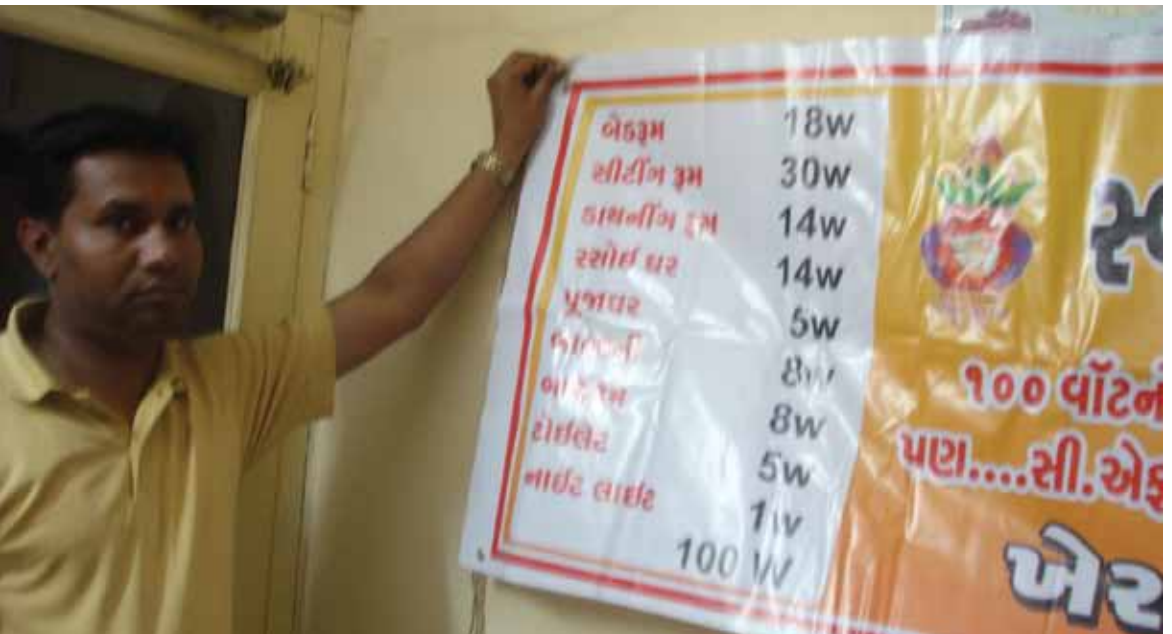 બેડરૂમ 18w
સીટીંગ રૂમ 30w
ડાયનીંગ રૂમ 14w
રસોઈ ઘર 14w
પૂજાઘર 5w
બાલ્કની 8w
બાથરૂમ 8w
ટોઈલેટ 5w
નાઈટ લાઈટ 1w
100 W
૧૦૦ વૉટનો
પણ....સી.એફ